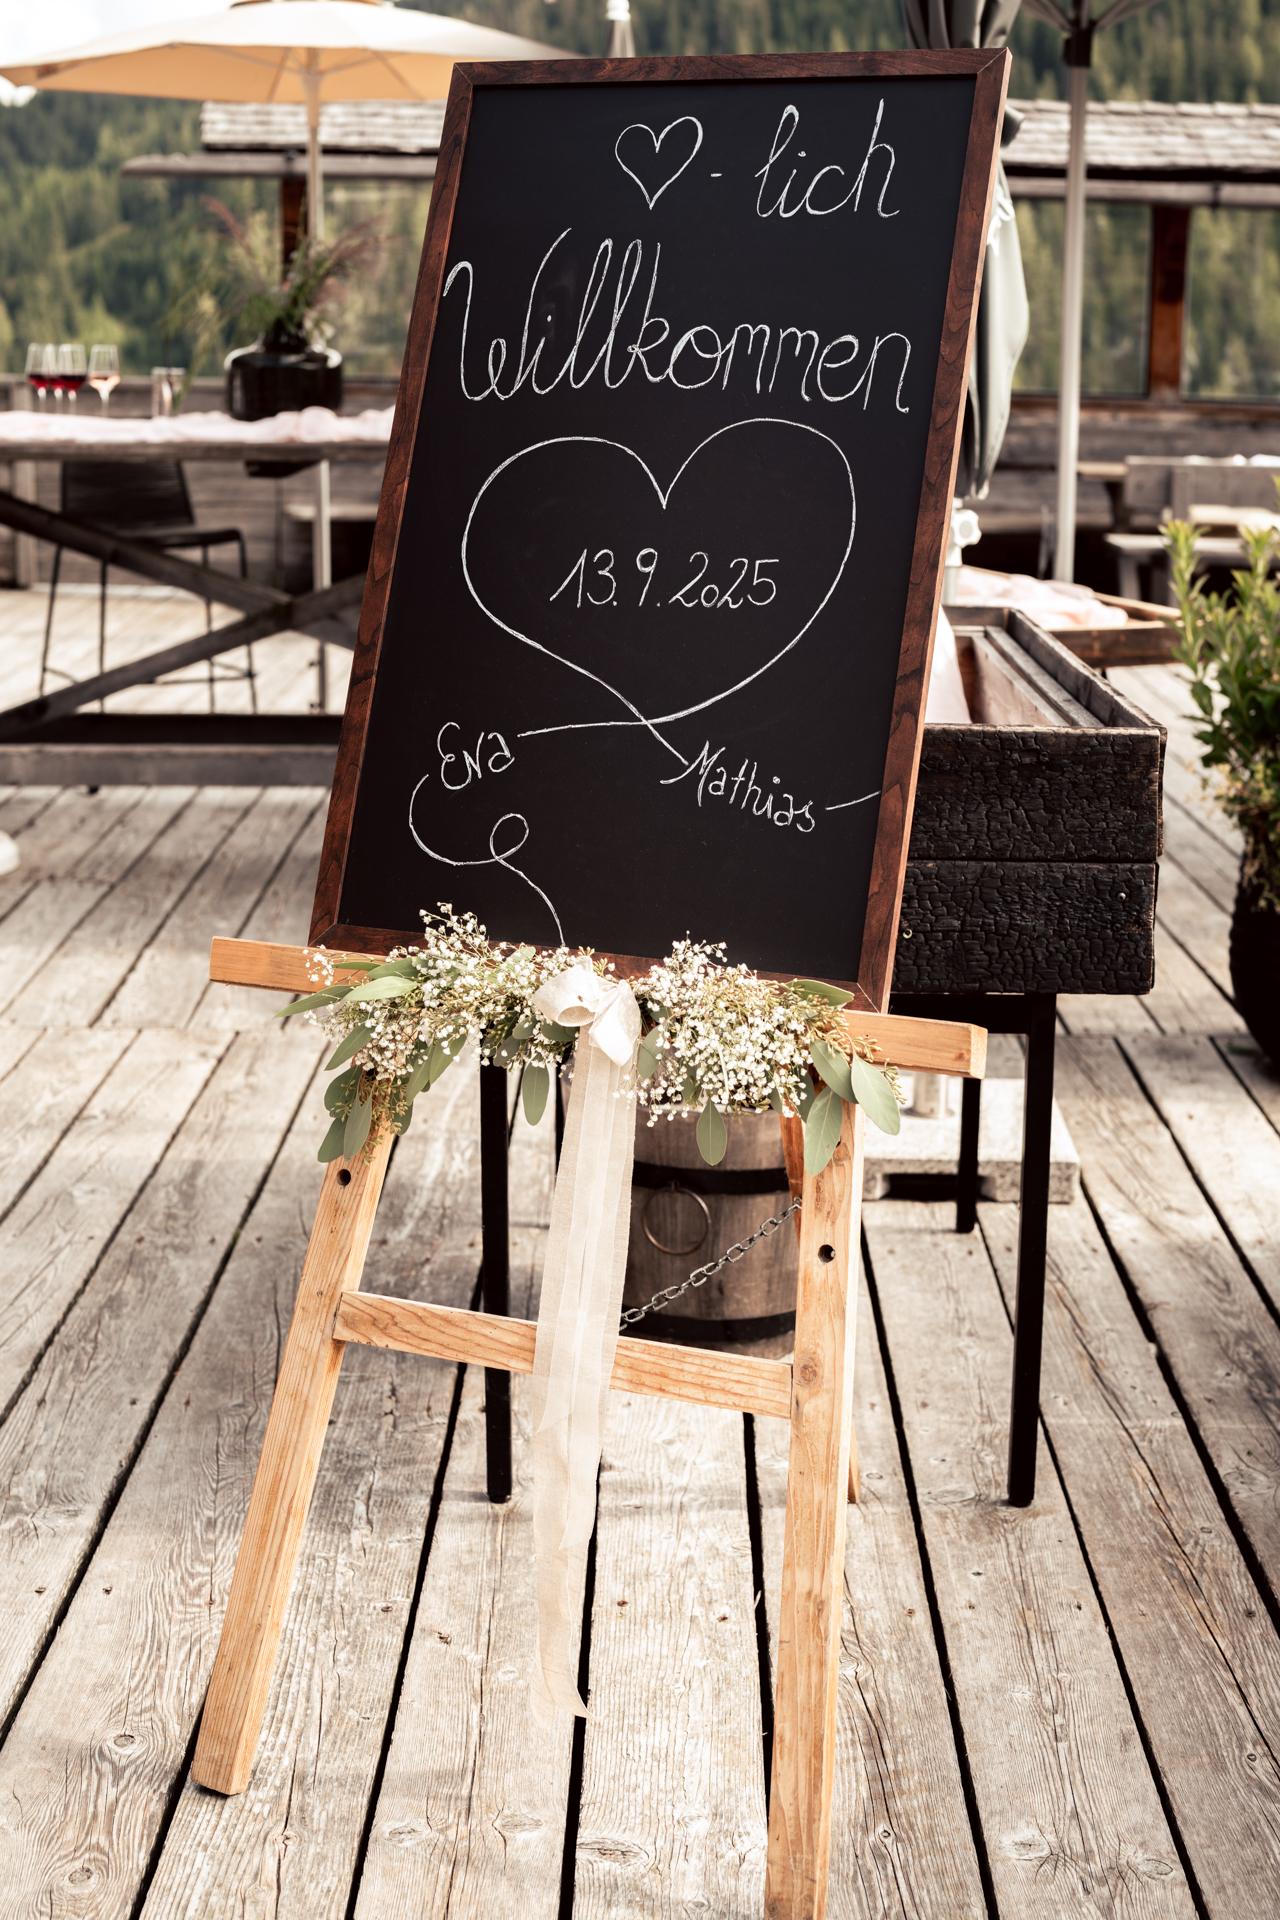 ♡-lich
Willkommen
13.9.2025
Eva
Mathias